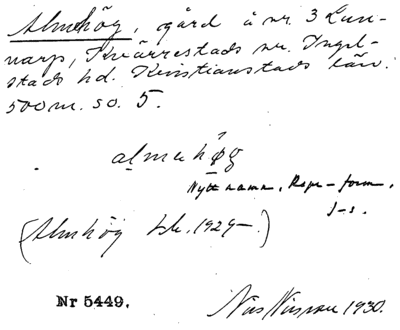 Almhög, gård å nr. 3 Lun-
narp, Kverrestads sn. Ingel-
stads hd. Kristianstads län.
500 m. so. 5.
almehøg
Nytt namn, Rspr-form,
J-s.
(Almhög Lk. 1929-.)
Nr 5449.
Nils Nilsson 1930.